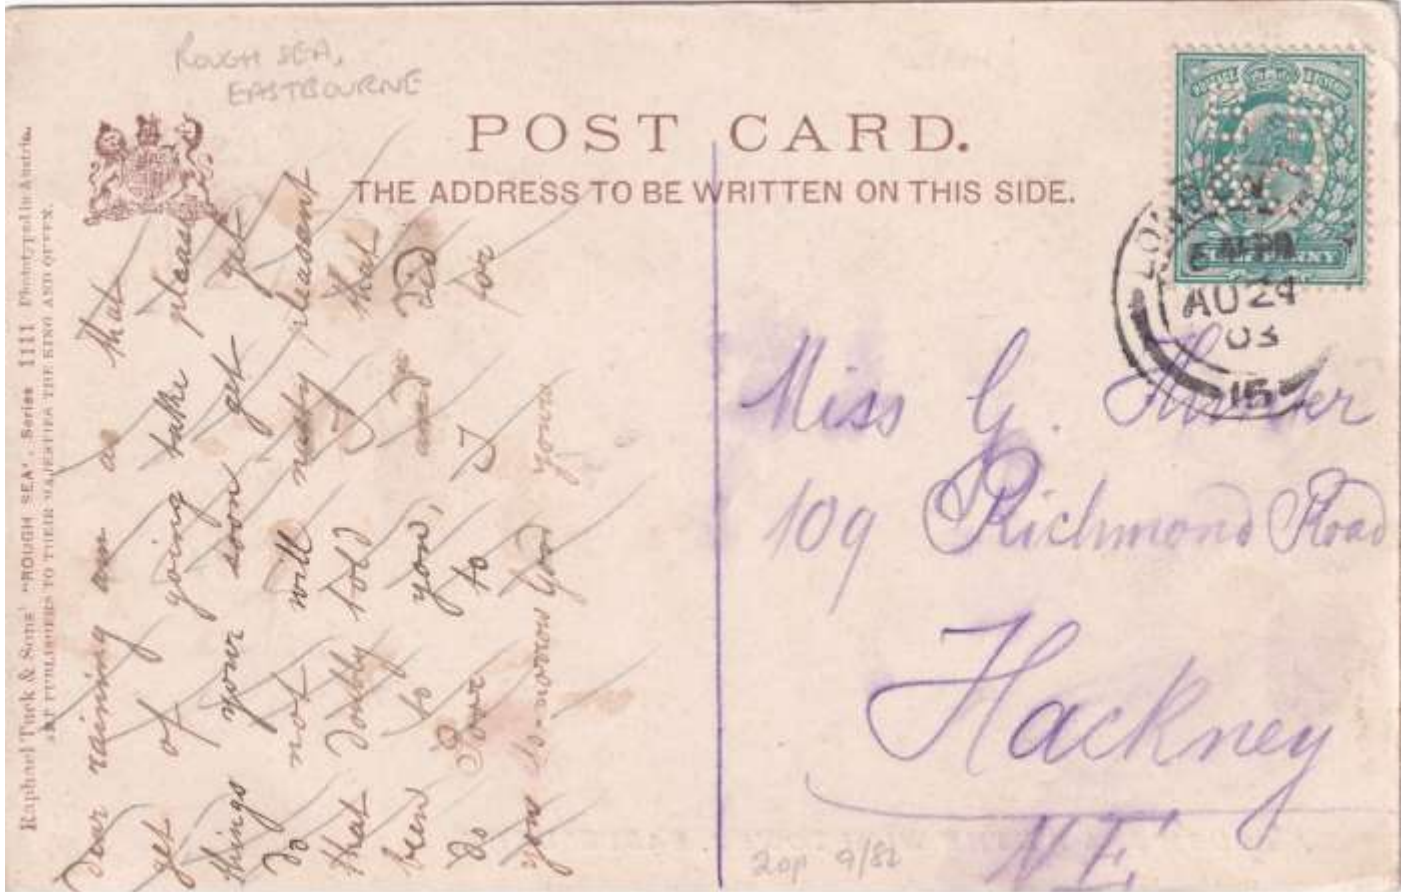 ROUGH SEA,
EASTBOURNE
POST CARD.
THE ADDRESS TO BE WRITTEN ON THIS SIDE.
Raphael Tuck & Sons' "ROUGH SEA". Series 1111 Phototyped in Austria.
ART PUBLISHERS TO THEIR MAJESTIES THE KING AND QUEEN.
Dear raining am as that
get of going take pleasure
things your soon get get
do not will nasty pleasant
that doubly told I that
been to you, and did
do Poor to I for
you to-morrow God yours
LONDON
AU 24
03
15
Miss G.
109 Richmond Road
Hackney
N.E.
20p 9/82